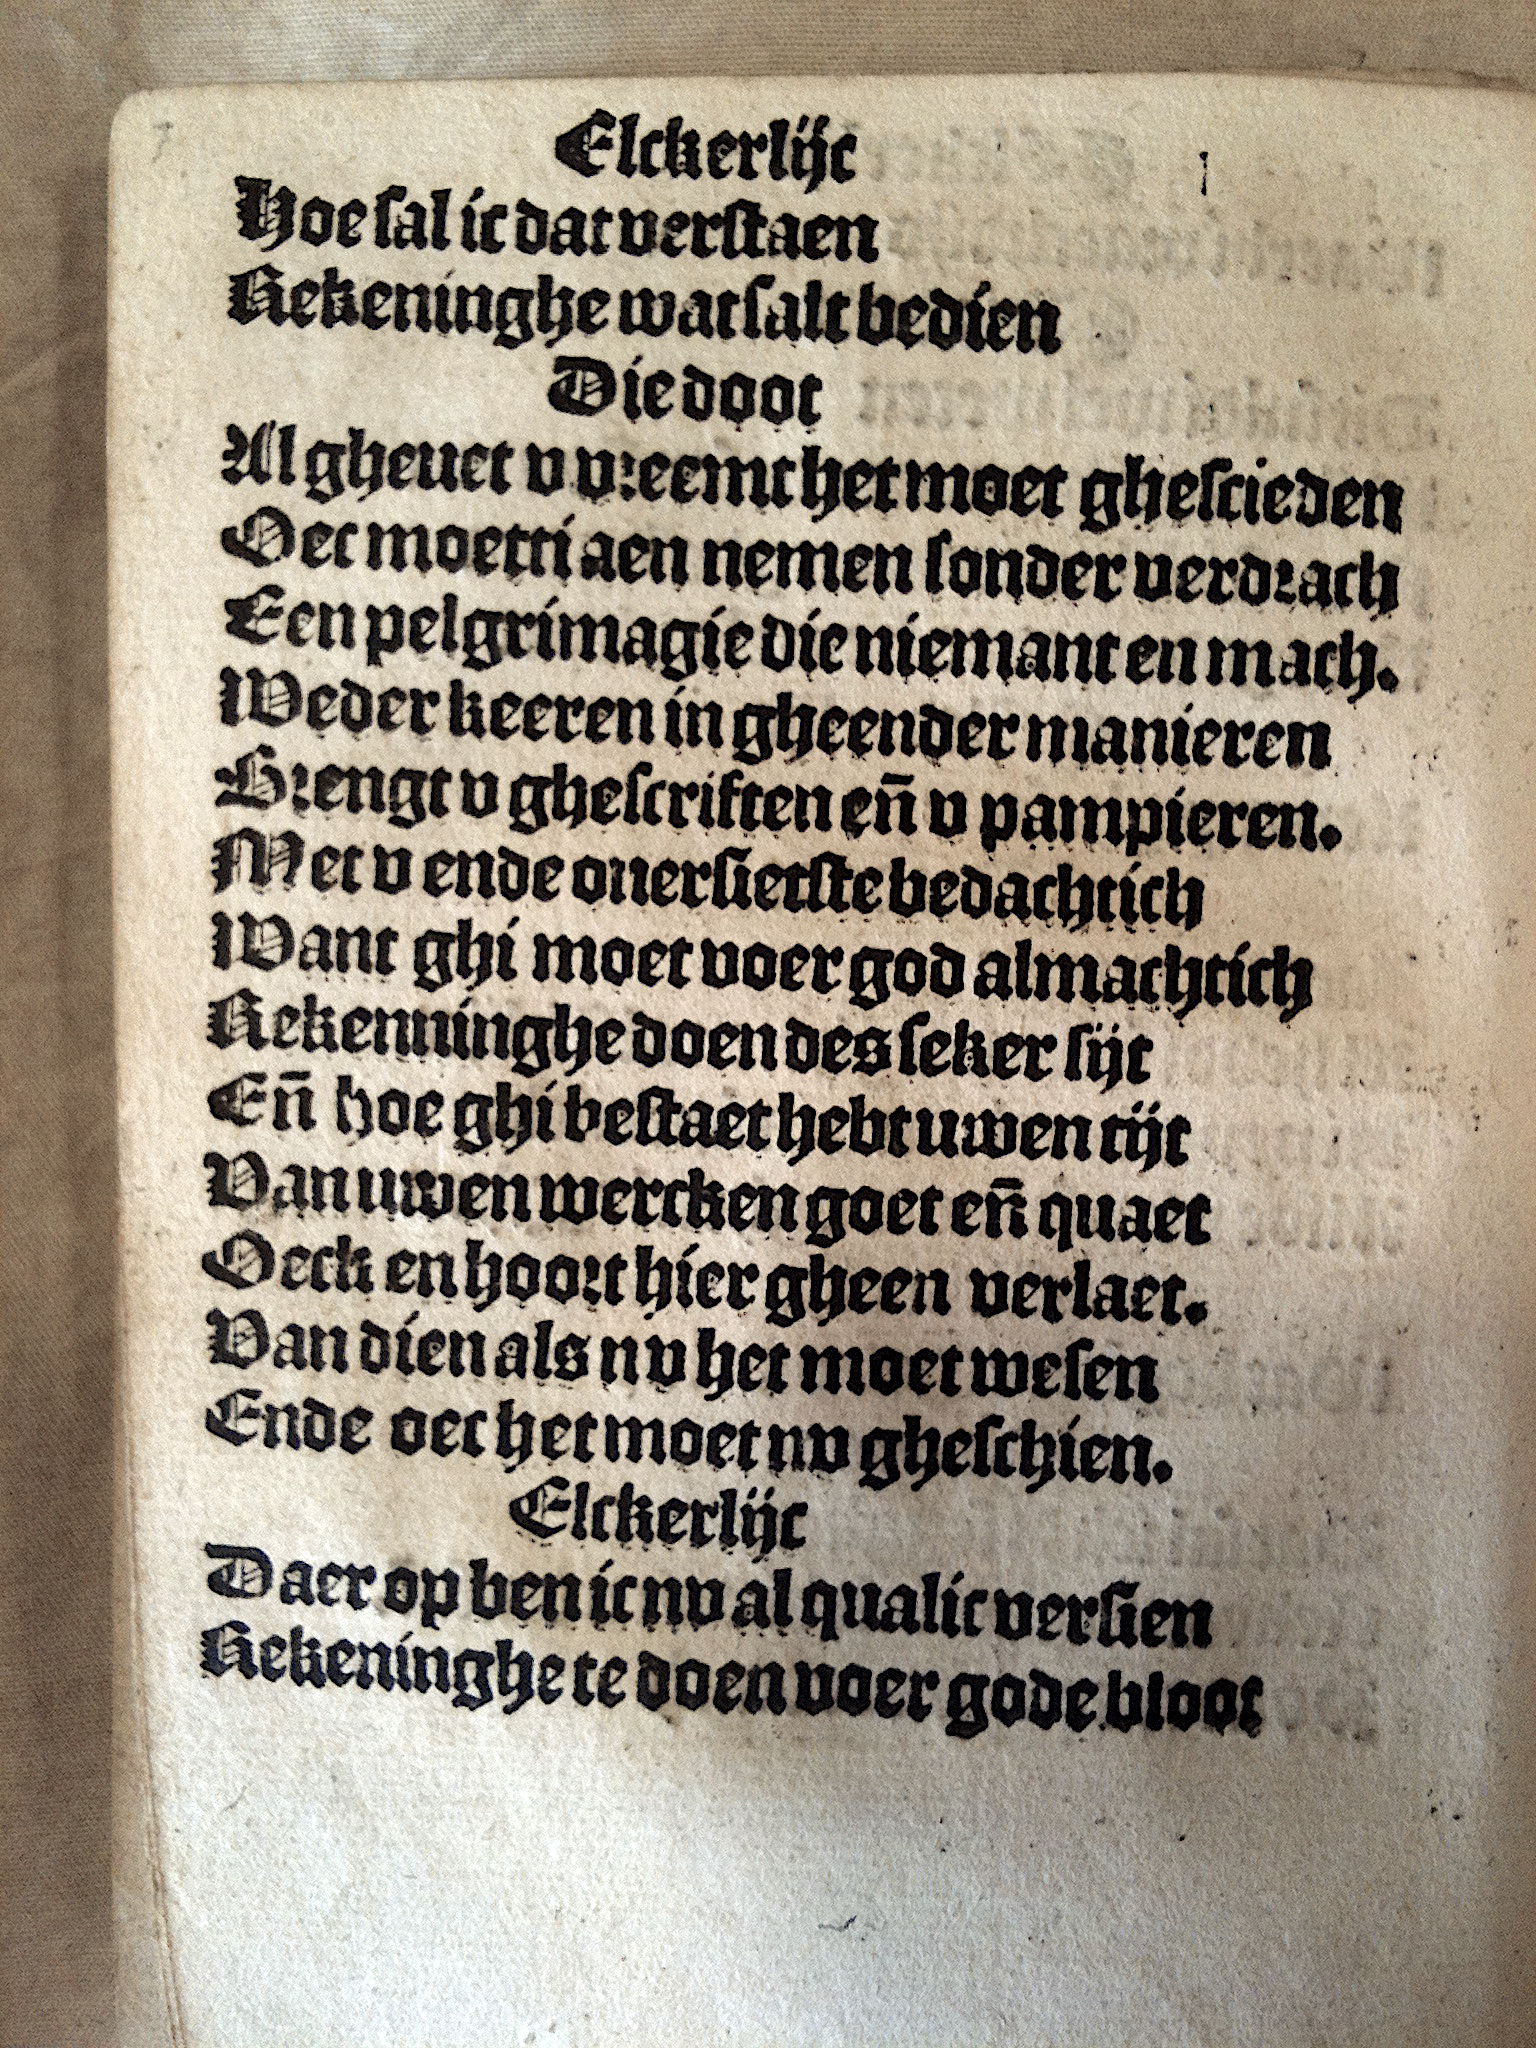 Elckerlijc
Hoe sal ic dat verstaen
Rekeninghe wat salt bedien
Die doot
Al gheuet v vreemt het moet ghescieden
Oec moetti aen nemen sonder verdrach
Een pelgrimagie die niemant en mach.
Weder keeren in gheender manieren
Brengt v ghescriften eñ v pampieren.
Met v ende ouersietste bedachtich
Want ghi moet voer god almachtich
Rekenninghe doen des seker sijt
Eñ hoe ghi bestaet hebt uwen tijt
Van uwen wercken goet eñ quaet
Oeck en hoort hier gheen verlaet.
Van dien als nv het moet wesen
Ende oec het moet nv gheschien.
Elckerlijc
Daer op ben ic nv al qualic versien
Rekeninghe te doen voer gode bloot